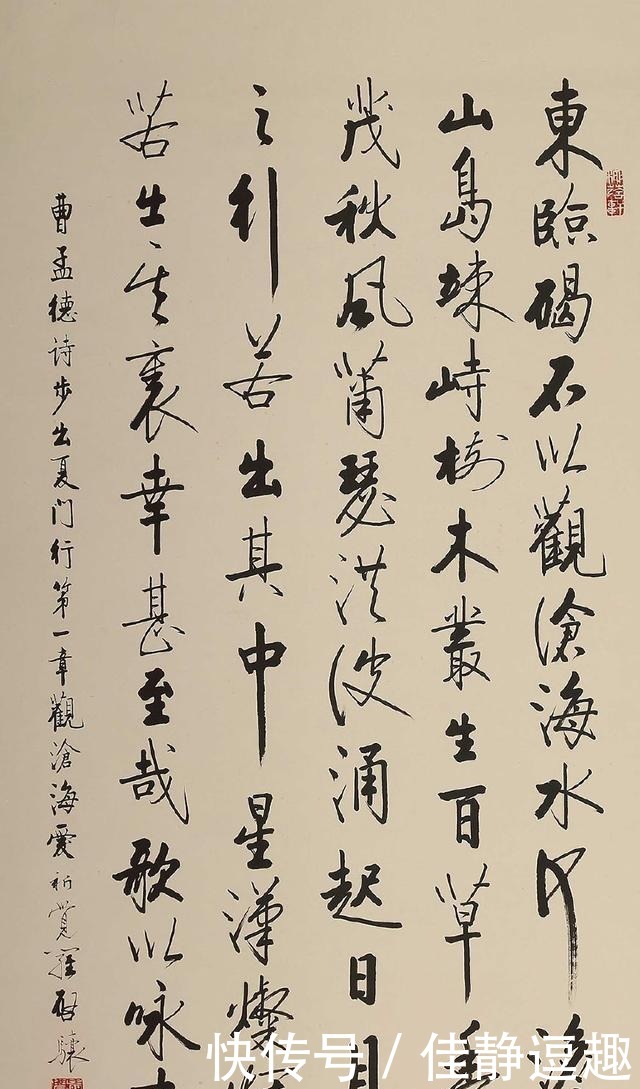 東臨碣石以觀滄海水何澹
山島竦峙樹木叢生百草
茂秋風蕭瑟洪波涌起日月
之行若出其中星漢燦
若出其裏幸甚至哉歌以咏
曹孟德诗步出夏门行第一章觀滄海愛新覺羅啟驤
快传号/佳静逗趣